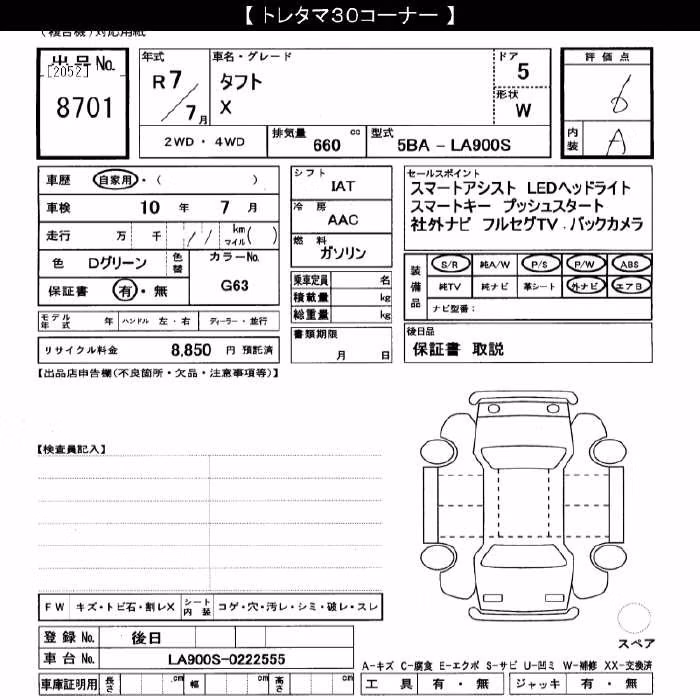 【 トレタマ30コーナー 】
(複合機)対応用紙
出品No.
[2052]
8701
年式
R7/7月
車名・グレード
タフト
X
ドア
5
形状
W
評価点
6
内装
A
2WD・4WD
排気量 660 cc
型式 5BA - LA900S
車歴 自家用・( )
車検 10 年 7 月
走行 万 千 // km マイル ( )
色 Dグリーン 色替
カラーNo.
G63
保証書 有・無
シフト
IAT
冷房
AAC
燃料
ガソリン
乗車定員 名
積載量 kg
総重量 kg
書類期限
月 日
セールスポイント
スマートアシスト LEDヘッドライト
スマートキー プッシュスタート
社外ナビ フルセグTV．バックカメラ
装備品
S/R 純A/W P/S P/W ABS
純TV 純ナビ 革シート 外ナビ エアB
ナビ型番：
モデル年式 年 ハンドル 左・右 ディーラー・並行
リサイクル料金 8,850 円 預託済
後日品
保証書 取説
【出品店申告欄(不良箇所・欠品・注意事項等)】
【検査員記入】
FW キズ・トビ石・割レX シート内装 コゲ・穴・汚レ・シミ・破レ・スレ
登録No. 後日
車台No. LA900S-0222555
車庫証明用 長さ cm 幅 cm 高さ cm
スペア
A-キズ C-腐食 E-エクボ S-サビ U-凹ミ W-補修 XX-交換済
工具 有・無 ジャッキ 有・無